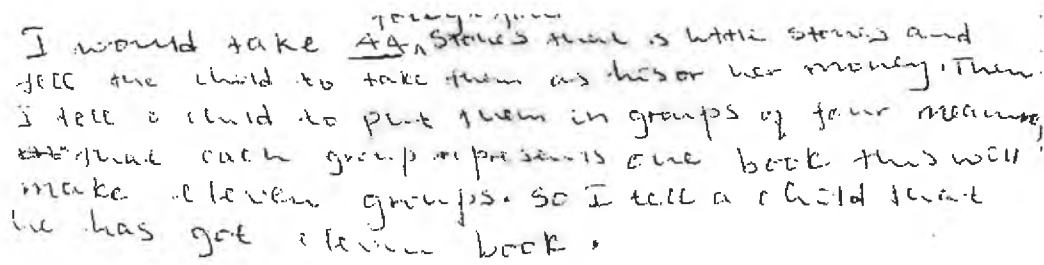 I would take 44 stones that is little stones and
tell the child to take them as his or her money. Then
I tell a child to put them in groups of four meaning
that each group represents one book this will
make eleven groups. So I tell a child that
he has got eleven book.